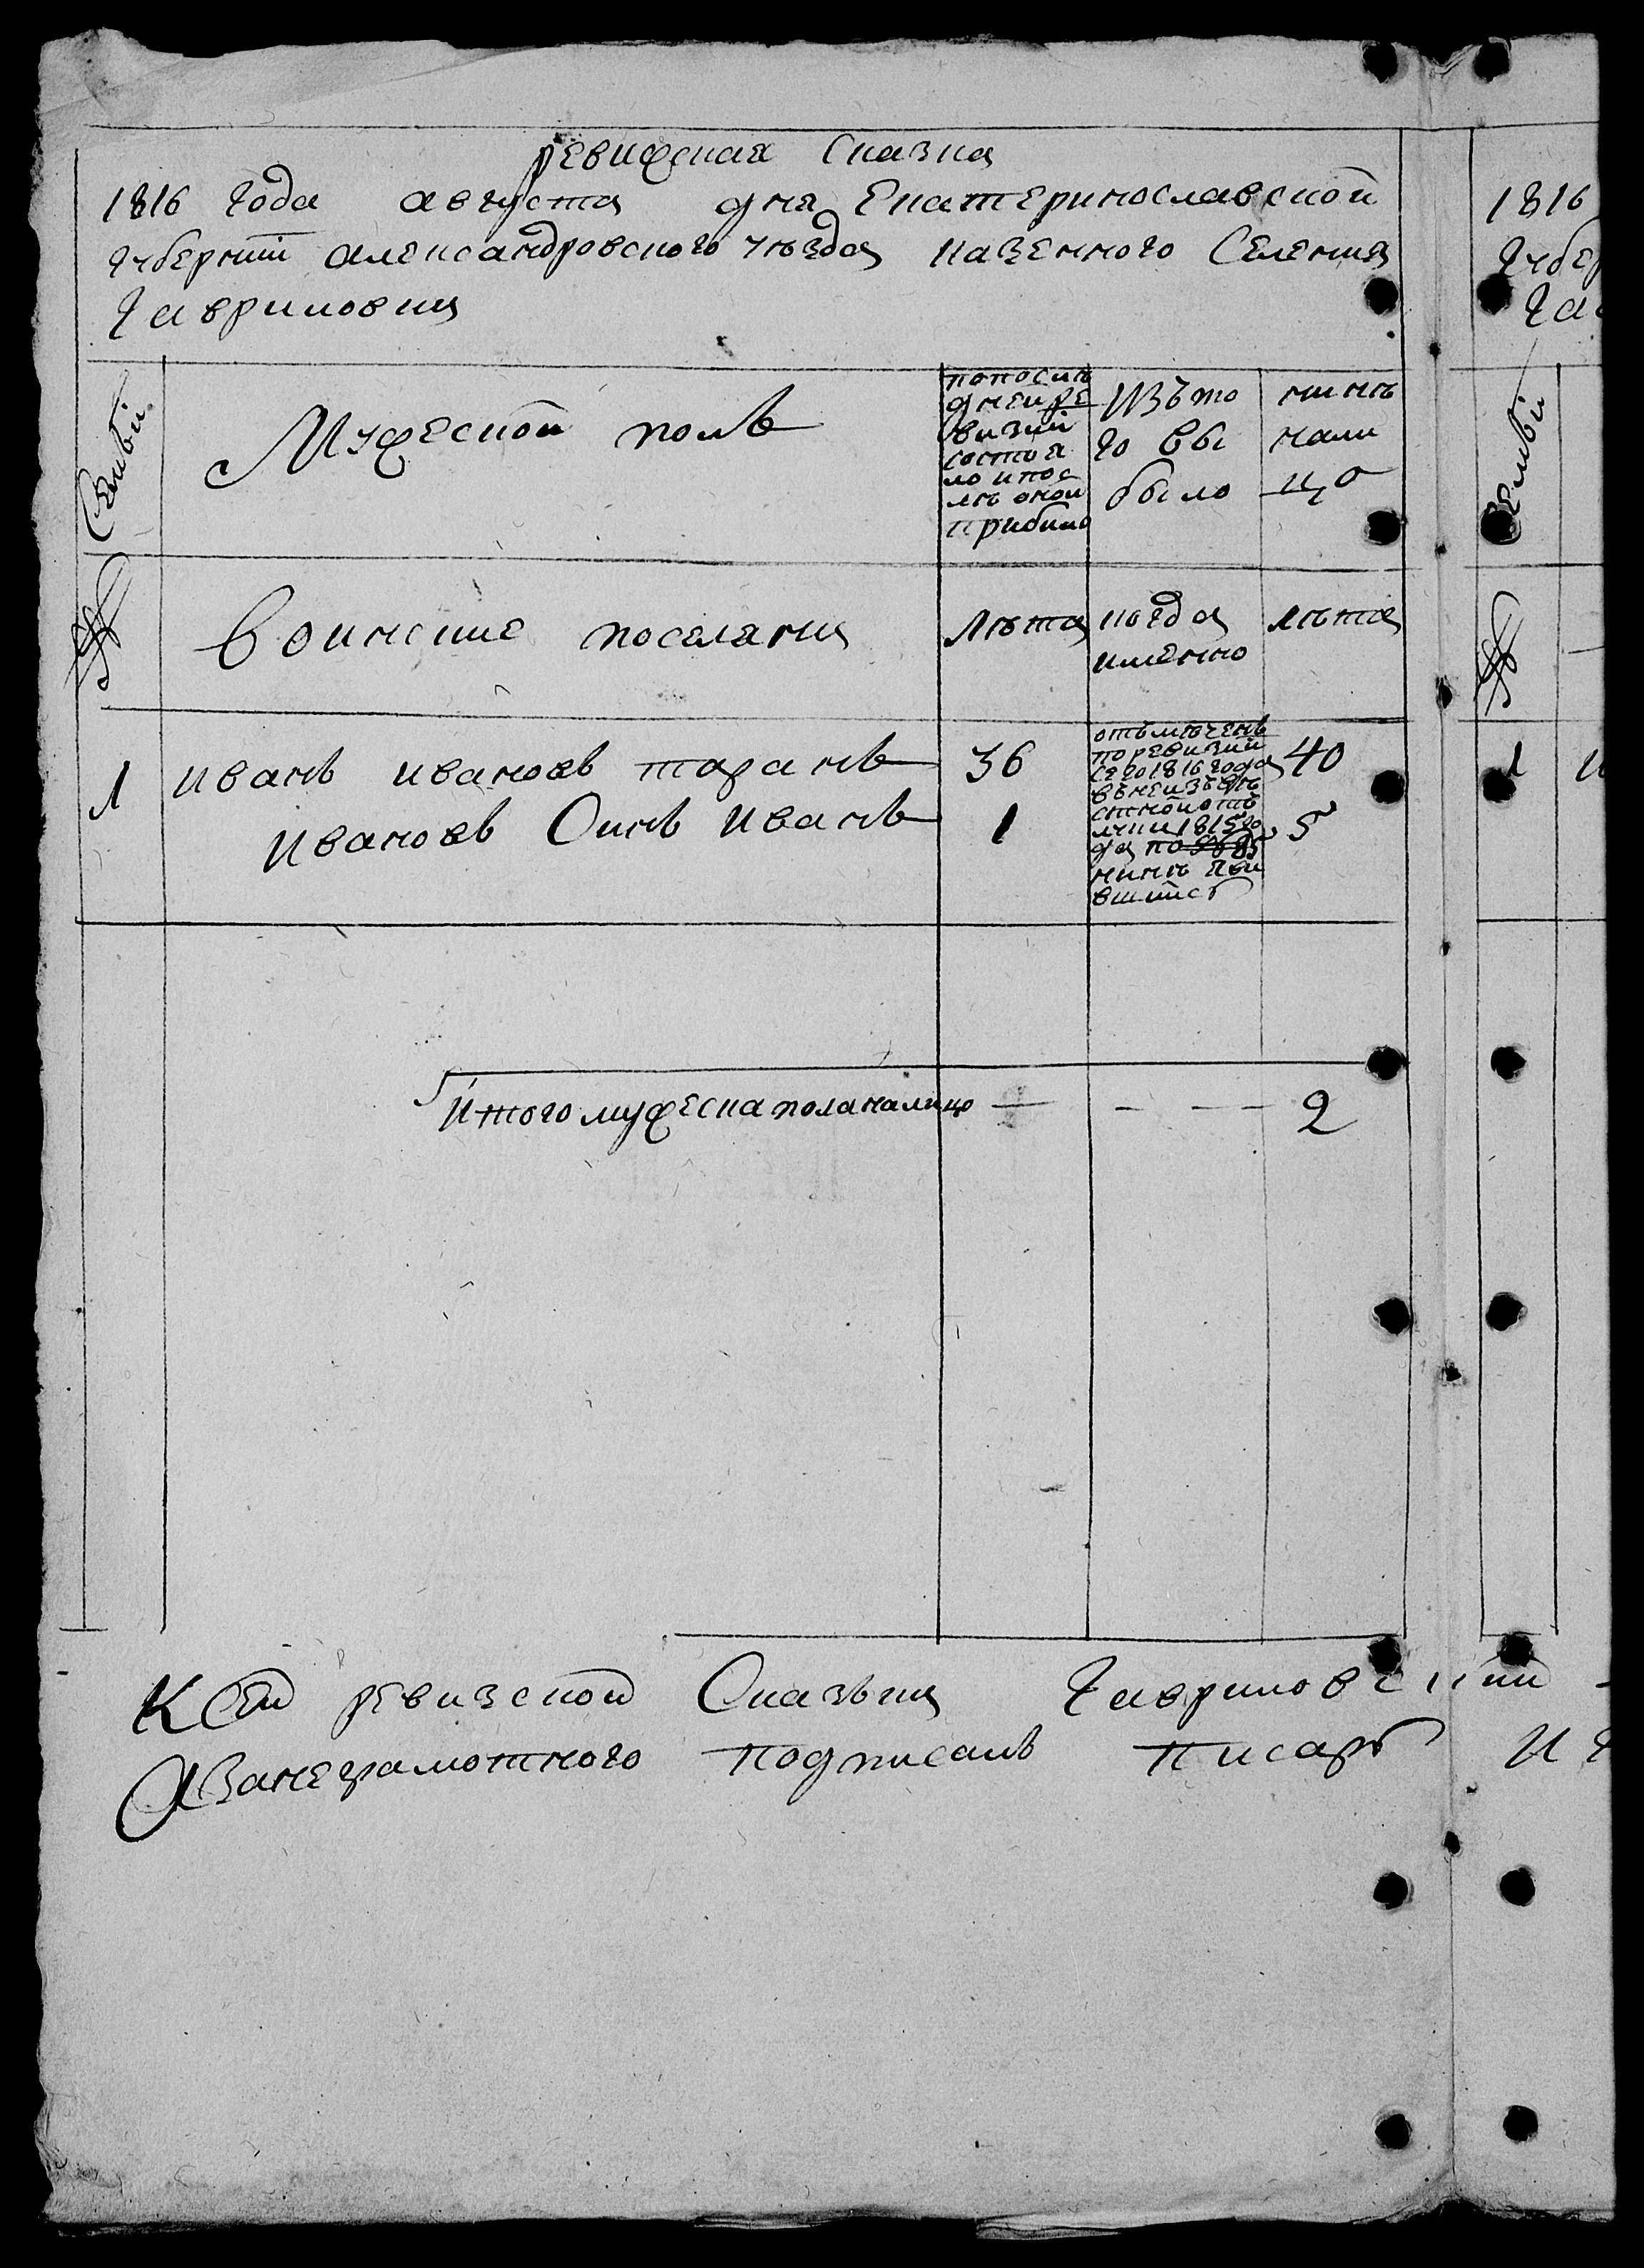 ревижская Сказка
1816 года августа дня Екатеринославской
губернии александровского уезда казенного Селения
гавриловки
Семьи
Мужеской полъ
попослѣ
дней ре
визии
состоя
ло и пос
лѣ оной
прибило
Изъ то
го вы
было
нинѣ
нали
цо
№
воинские поселяни
лѣта
когда
именно
лѣта
1
иванъ ивановъ таранъ
36
отъмѣченъ
по ревизии
сего 1816 года
въ неизвѣ
стной отъ
лучки 1815 го
да по
нинѣ яви
вшийсь
40
Ивановъ Синъ Иванъ
1
5
Итого мужеска пола налицо
2
К Сей ревизской Сказъки гавриловский
За неграмотного подписалъ писарь
1816
губер
га
Семьи
№
1